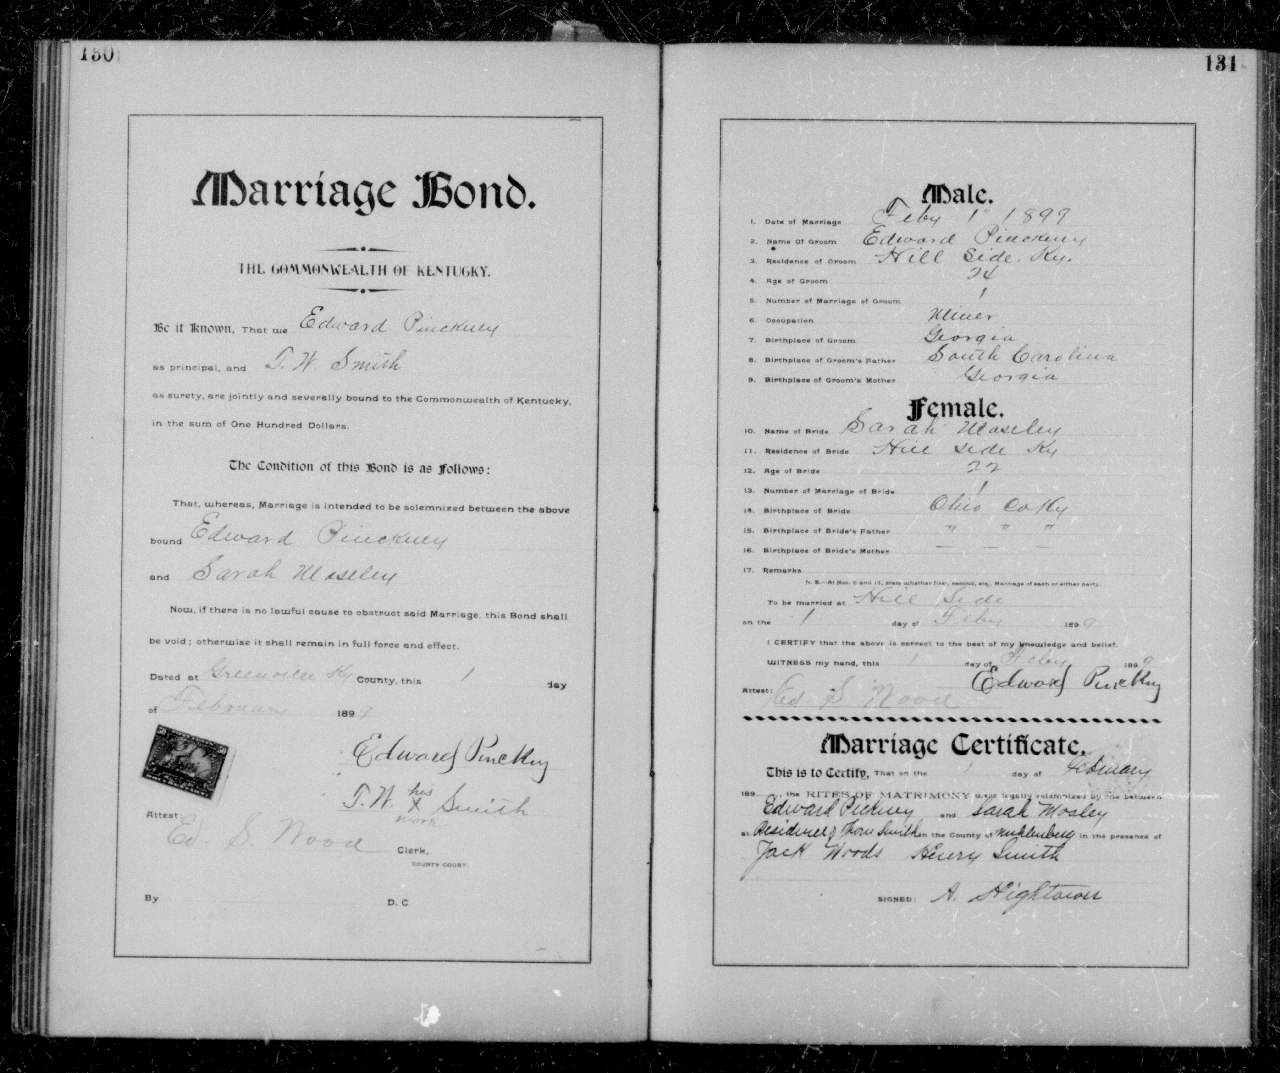 130
Marriage Bond.
THE COMMONWEALTH OF KENTUCKY.
Be it Known, That we Edward Pinckney
as principal, and T. W. Smith
as surety, are jointly and severally bound to the Commonwealth of Kentucky,
in the sum of One Hundred Dollars.
The Condition of this Bond is as Follows:
That, whereas, Marriage is intended to be solemnized between the above
bound Edward Pinckney
and Sarah Moseley
Now, if there is no lawful cause to obstruct said Marriage, this Bond shall
be void; otherwise it shall remain in full force and effect.
Dated at Greenville Ky County, this 1 day
of February 1899
Edward Pinckney
T. W. his X mark Smith
Attest:
Ed S. Wood Clerk,
COUNTY COURT.
By D. C
131
Male.
1. Date of Marriage Feby 1" 1899
2. Name Of Groom Edward Pinckney
3. Residence of Groom Hill Side. Ky.
4. Age of Groom 24
5. Number of Marriage of Groom 1
6. Occupation Miner
7. Birthplace of Groom Georgia
8. Birthplace of Groom's Father South Carolina
9. Birthplace of Groom's Mother Georgia
Female.
10. Name of Bride Sarah Moseley
11. Residence of Bride Hill Side Ky
12. Age of Bride 22
13. Number of Marriage of Bride 1
14. Birthplace of Bride Ohio Co Ky
15. Birthplace of Bride's Father " " "
16. Birthplace of Bride's Mother — — —
17. Remarks
N. B.—At Nos. 5 and 13, state whether first, second, etc., Marriage of each or either party.
To be married at Hill Side
on the 1 day of Feby 1899
I CERTIFY that the above is correct to the best of my knowledge and belief.
WITNESS my hand, this 1 day of Feby 1899
Edward Pinckney
Attest: Ed S. Wood
Marriage Certificate.
This is to Certify, That on the 1 day of February
189 the RITES OF MATRIMONY were legally solemnized by me between
Edward Pickney and Sarah Mosley
at Residence of Thom Smith in the County of Muhlenberg in the presence of
Jack Woods Henry Smith
SIGNED: A. Hightower